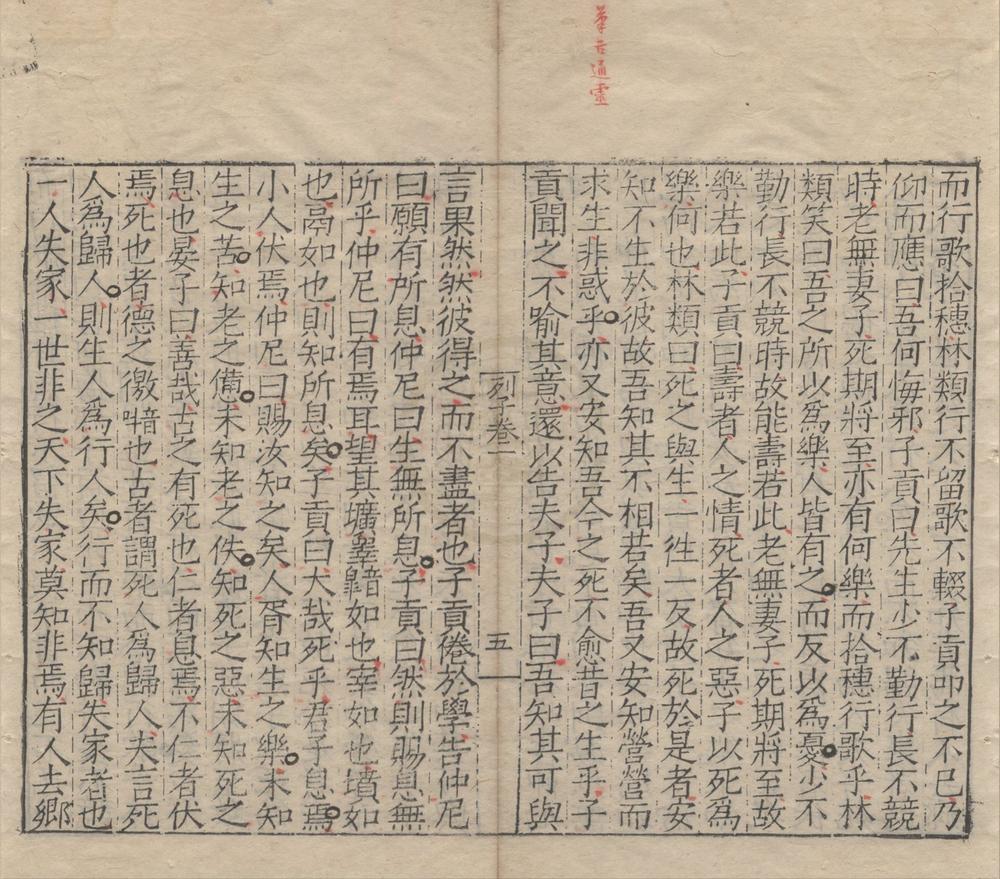 而行歌拾穗林類行不留歌不輟子貢叩之不已乃
仰而應曰吾何悔邪子貢曰先生少不勤行長不競
時老無妻子死期將至亦有何樂而拾穗行歌乎林
類笑曰吾之所以爲樂人皆有之而反以爲憂少不
勤行長不競時故能壽若此老無妻子死期將至故
樂若此子貢曰壽者人之情死者人之惡子以死爲
樂何也林類曰死之與生一徃一反故死於是者安
知不生於彼故吾知其不相若矣吾又安知營營而
求生非惑乎亦又安知吾今之死不愈昔之生乎子
貢聞之不喻其意還以告夫子夫子曰吾知其可與
列子卷一
五
言果然然彼得之而不盡者也子貢倦於學告仲尼
曰願有所息仲尼曰生無所息子貢曰然則賜息無
所乎仲尼曰有焉耳望其壙睪如也宰如也墳如
也鬲如也則知所息矣子貢曰大哉死乎君子息焉
小人伏焉仲尼曰賜汝知之矣人胥知生之樂未知
生之苦知老之憊未知老之佚知死之惡未知死之
息也晏子曰善哉古之有死也仁者息焉不仁者伏
焉死也者德之徼也古者謂死人爲歸人夫言死
人爲歸人則生人爲行人矣行而不知歸失家者也
一人失家一世非之天下失家莫知非焉有人去鄉
通靈